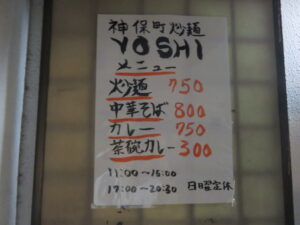 神保町炒麺
YOSHI
メニュー
炒麺 750
中華そば 800
カレー 750
茶碗カレー 300
11:00~16:00
17:00~20:30 日曜定休